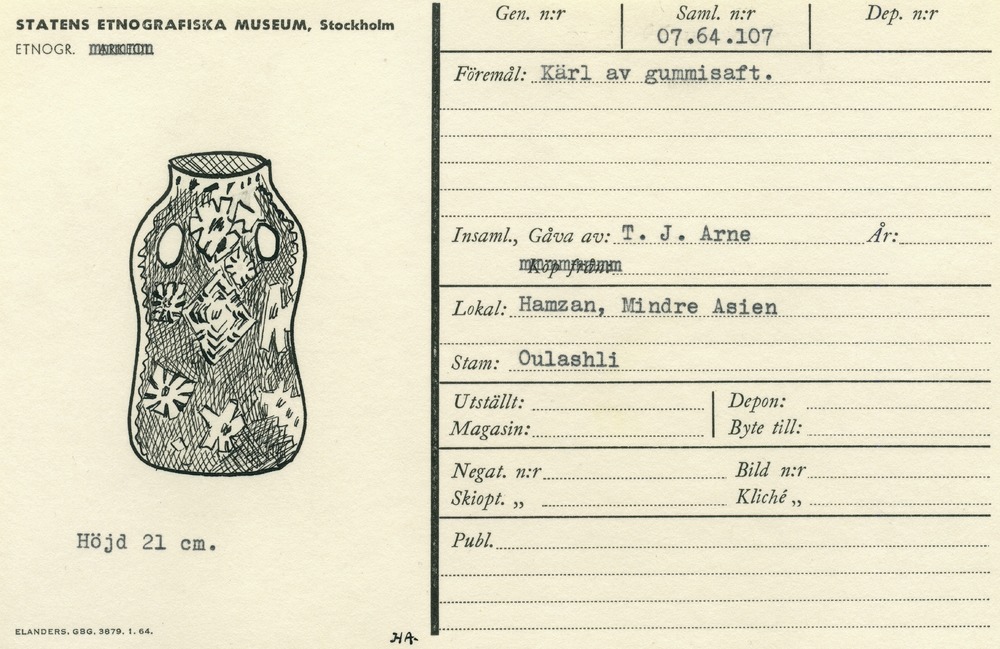 STATENS ETNOGRAFISKA MUSEUM, Stockholm
ETNOGR.
Höjd 21 cm.
ELANDERS. GBG. 3879. 1. 64.
HA
Gen. n:r Saml. n:r Dep. n:r
07.64.107
Föremål: Kärl av gummisaft.
Insaml., Gåva av: T. J. Arne År:
Köp från:
Lokal: Hamzan, Mindre Asien
Stam: Oulashli
Utställt: Depon:
Magasin: Byte till:
Negat. n:r Bild n:r
Skiopt. „ Kliché „
Publ.